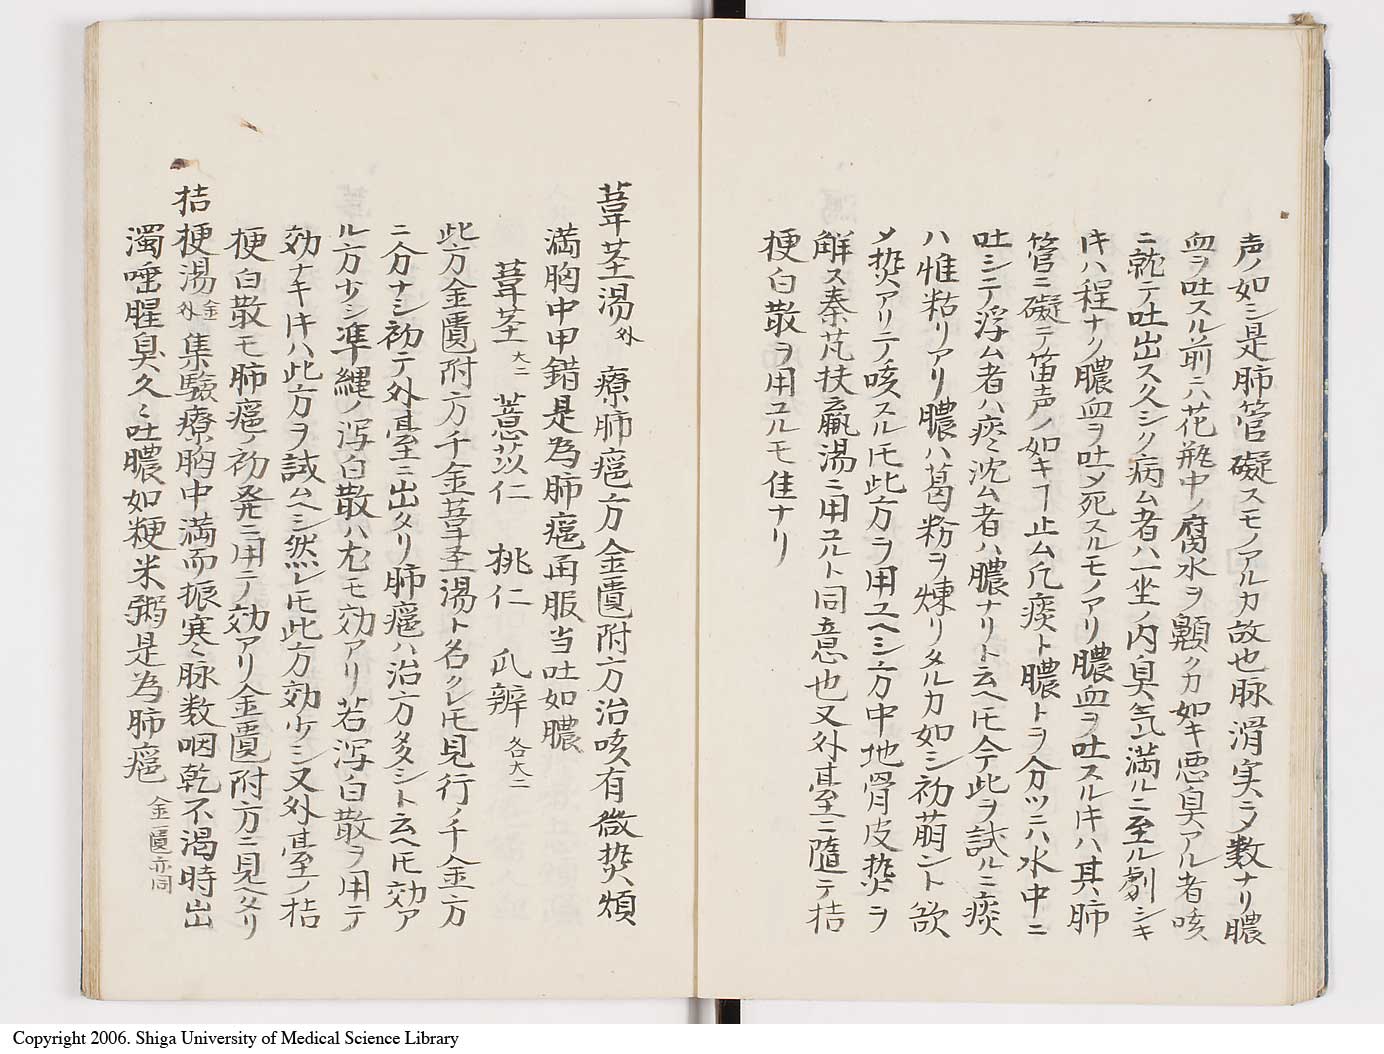 声ノ如シ是肺管礙スモノアルカ故也脉滑実ニメ数ナリ膿
血ヲ吐スル前ニハ花瓶中ノ腐水ヲ顚クカ如キ悪臭アル者咳
ニ就テ吐出ス久シク病ム者ハ一坐ノ内臭気満ルニ至ル劇シキ
ﾄｷハ程ナク膿血ヲ吐メ死スルモノアリ膿血ヲ吐スルﾄｷハ其肺
管ニ礙テ笛声ノ如キヿ止ム凢痰ト膿トヲ分ツニハ水中ニ
吐シテ浮ム者ハ痰沈ム者ハ膿ナリト云ヘ𪜈今此ヲ試ルニ痰
ハ惟粘リアリ膿ハ葛粉ヲ煉リタルカ如シ初萌ント欲
メ𤍠アリテ咳スル𪜈此方ヲ用ユヘシ方中地骨皮𤍠ヲ
解ス秦芁扶羸湯ニ用ユルト同意也又外臺ニ隨テ桔
梗白散ヲ用ユルモ佳ナリ
葦茎湯 外 療肺癰方金匱附方治咳有微𤍠煩
満胸中甲錯是為肺癰再服当吐如膿
葦茎 大二 薏苡仁 桃仁 爪辨 各大二
此方金匱附方千金葦茎湯ト名クレ𪜈見行ノ千金方
ニ分ナシ初テ外臺ニ出タリ肺癰ハ治方多シト云ヘ𪜈効ア
ル方少シ準縄ノ瀉白散ハ尤モ効アリ若瀉白散ヲ用テ
効ナキﾄｷハ此方ヲ試ムヘシ然レ𪜈此方効少シ又外臺ノ桔
梗白散モ肺癰ノ初発ニ用テ効アリ金匱附方ニ見ヘタリ
桔梗湯 金外 集驗療胸中満而振寒〻脉数咽乾不渇時出
濁唾腥臭久〻吐膿如粳米粥是為肺癰 金匱亦同
Copyright 2006. Shiga University of Medical Science Library